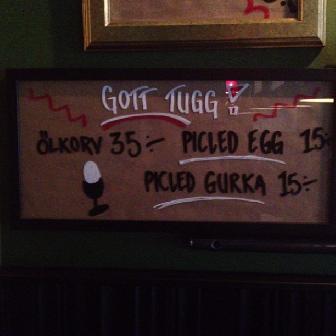 GOTT TUGG!
ÖLKORV 35:- PICLED EGG 15:
PICLED GURKA 15:-